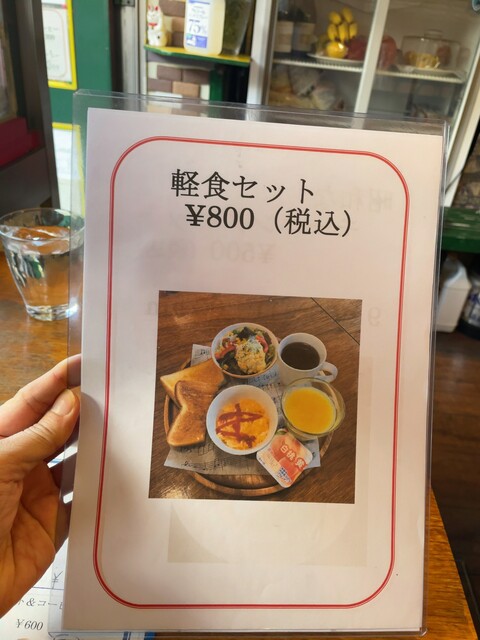 軽食セット
¥800（税込）
¥600